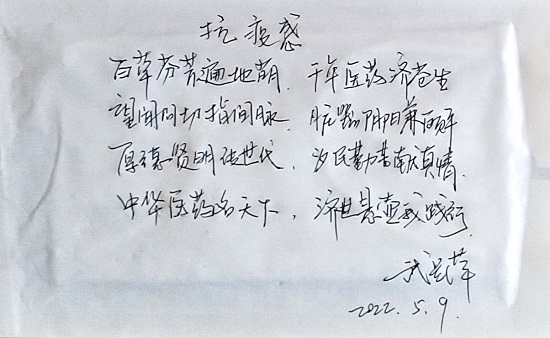 抗疫感
百草芬芳遍地萌,千年医药济苍生
望闻问切指间脉,脏器阴阳兼
厚德贤明传世代,勤真情
中华医药名天下,济世悬壶我践行
2022.5.9.